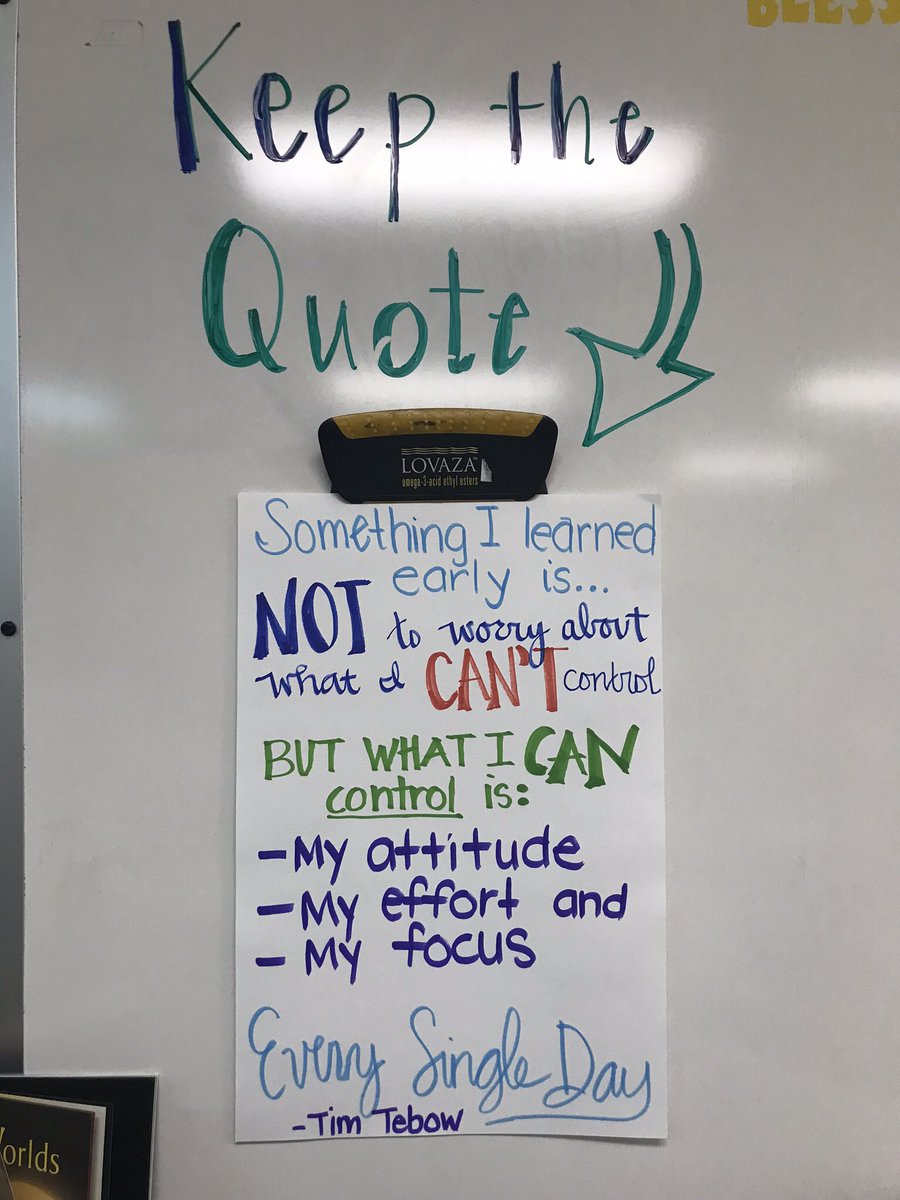 BLESS
Keep the
Quote
LOVAZA™
omega-3-acid ethyl esters
Something I learned
early is...
NOT to worry about
what I CAN'T control
BUT WHAT I CAN
control is:
-My attitude
-My effort and
- My focus
Every Single Day
-Tim Tebow
orlds